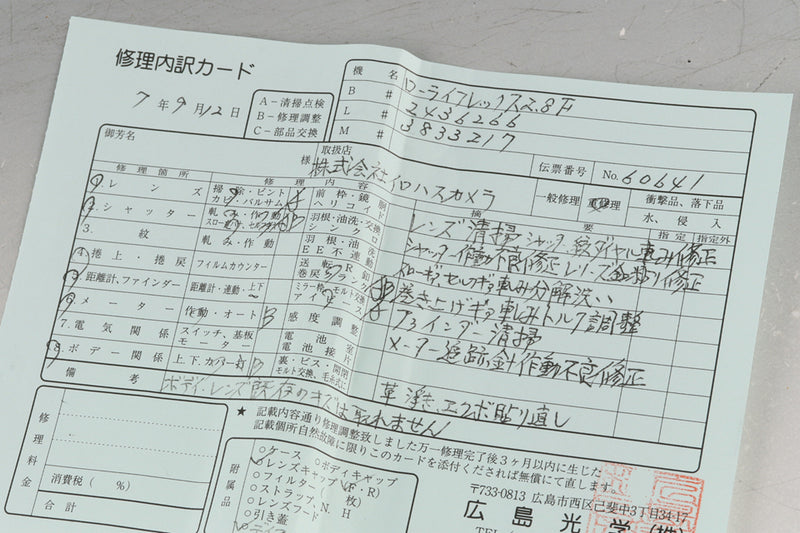 修理内訳カード
7年9月12日
A－清掃点検
B－修理調整
C－部品交換
機名 ローライフレックス2.8F
B # 2436266
L #
M # 3833217
伝票番号 No. 60641
御芳名 様
取扱店 株式会社イロハスカメラ
一般修理 重修理 衝撃品、落下品
水、侵入
修理箇所 修理内容 摘要 指定 指定外
1. レンズ 掃除・ピント カビ・バルサム 前枠・鏡胴 ヘリコイド
2. シャッター 軋み・作動 羽根・油洗・交換 シンクロ
3. 絞 軋み・作動 羽根・油洗 EE不連動
4. 捲上・捲戻 フィルムカウンター
5. 距離計、ファインダー 距離計・連動・上下
6. メーター 作動・オート B 感度調整
7. 電気関係 スイッチ、基板 モーター 電池室 電池接片
8. ボデー関係 上下、カバー B 裏・ビス・開閉
レンズ清掃 シャッター 絞ダイヤル軋み修正
シャッター作動不良修正 レリーズ
スローギヤ, セルフギヤ軋み分解洗い
巻き上げギヤ軋みトルク調整
ファインダー清掃
メーター追跡針作動不良修正
革浮き、エクボ貼り直し
備考 ボディ、レンズ既存のキズは取れません
★ 記載内容通り修理調整致しました万一修理完了後3ヶ月以内に生じた
記載個所自然故障に限りこのカードを添付くだされば無償にて直します。
修理料金
消費税（ %）
合計
附属品
○ケース ○ボディキャップ
○レンズキャップ（F．R）
○フィルター（ 枚）
○ストラップ、N. H
○レンズフード
○引き蓋
〒733-0813 広島市西区己斐中3丁目34-17
広島光学(株)
TEL